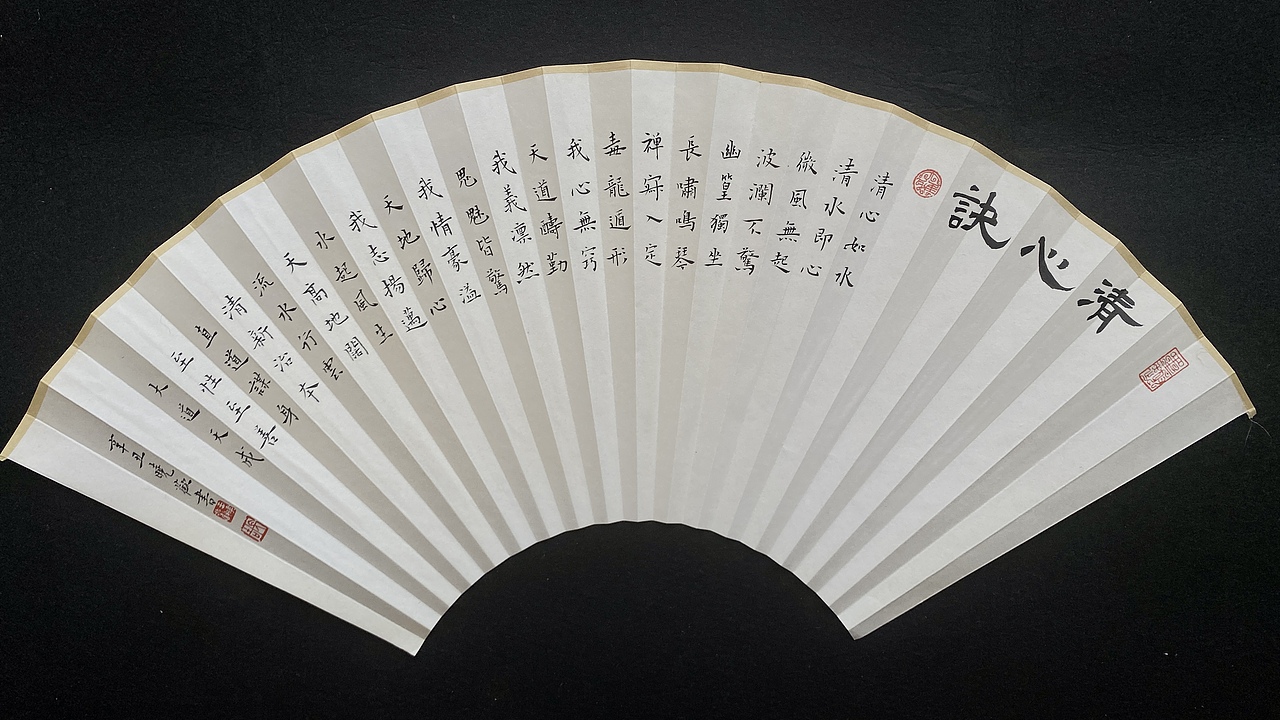 清心訣
清心如水
清水即心
微風無起
波瀾不驚
幽篁獨坐
長嘯鳴琴
禅寂入定
毒龍遁形
我心無竅
天道醻勤
我義凛然
鬼魅皆驚
我情豪溢
天地歸心
我志揚邁
水起風生
天高地闊
流水行雲
清新治本
直道謀身
至性至善
大道天成
辛丑曉薇書